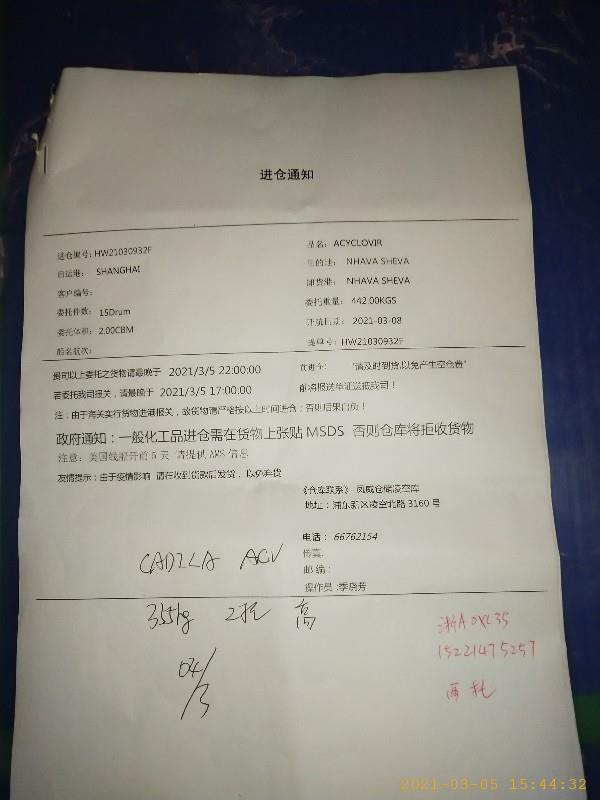 进仓通知
进仓编号: HW21030932F
品名: ACYCLOVIR
启运港: SHANGHAI
目的地: NHAVA SHEVA
客户编号:
卸货港: NHAVA SHEVA
委托件数: 15Drum
委托重量: 442.00KGS
委托体积: 2.00CBM
开航日期: 2021-03-08
船名航次:
提单号: HW21030932F
贵司以上委托之货物请最晚于 2021/3/5 22:00:00 前进仓: "请及时到货,以免产生空仓费"
若委托我司报关,请最晚于 2021/3/5 17:00:00 前将报送单证送抵我司!
注:由于海关实行货物进港报关,故货物请严格按以上时间进仓;否则后果自负!
政府通知:一般化工品进仓需在货物上张贴MSDS 否则仓库将拒收货物
注意:美国线船开前5天 请提供 AMS 信息
友情提示:由于疫情影响 请在收到货款后发货,以免弃货
《仓库联系》 凤威仓储凌空库
地址:浦东新区凌空北路3160号
电话: 66762154
传真:
邮编:
操作员:季晓芳
CADILA ACV
355kg 2托 高
04/3
浙A0XL35
15221475257
两托
2021-03-05 15:44:32